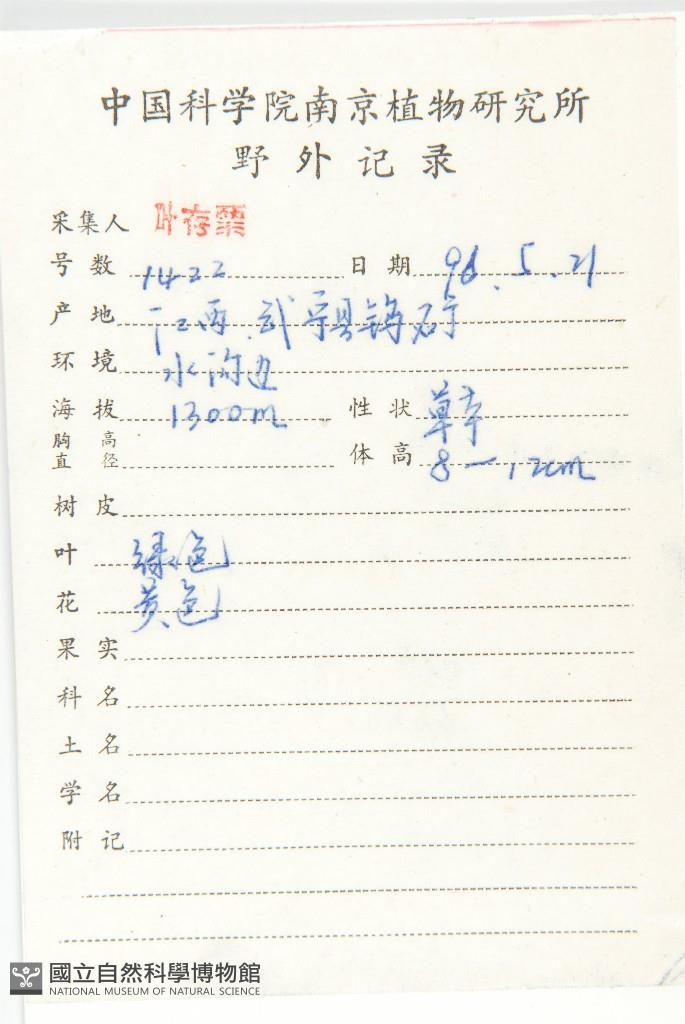 中国科学院南京植物研究所
野外记录
采集人 叶存粟
号数 1422 日期 96.5.21
产地 江西.武宁县
环境 水沟边
海拔 1300m 性状 草本
胸高直径 体高 8—12cm
树皮
叶 绿色
花 黄色
果实
科名
土名
学名
附记
國立自然科學博物館
NATIONAL MUSEUM OF NATURAL SCIENCE